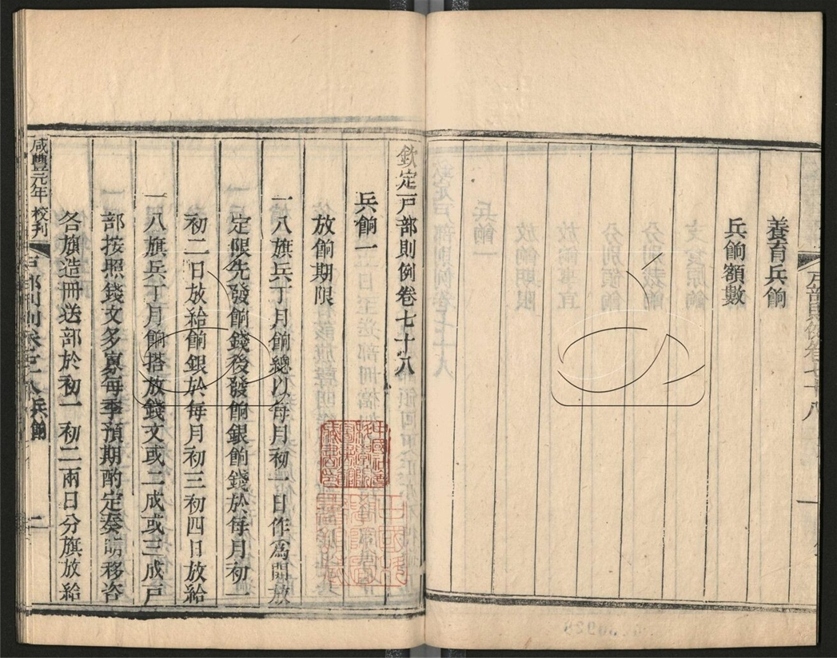 養育兵餉
兵餉額數
戶部則例卷七十八
欽定戶部則例卷七十八
兵餉一
放餉期限
一八旗兵丁月餉總以每月初一日作爲開放
定限先發餉錢後發餉銀餉錢於每月初一
初二日放給餉銀於每月初三初四日放給
一八旗兵丁月餉搭放錢文或二成或三成戶
部按照錢文多寡每季預期酌定奏明移咨
各旗造冊送部於初一初二兩日分旗放給
咸豐元年校刊
戶部則例卷七十八 兵餉 二